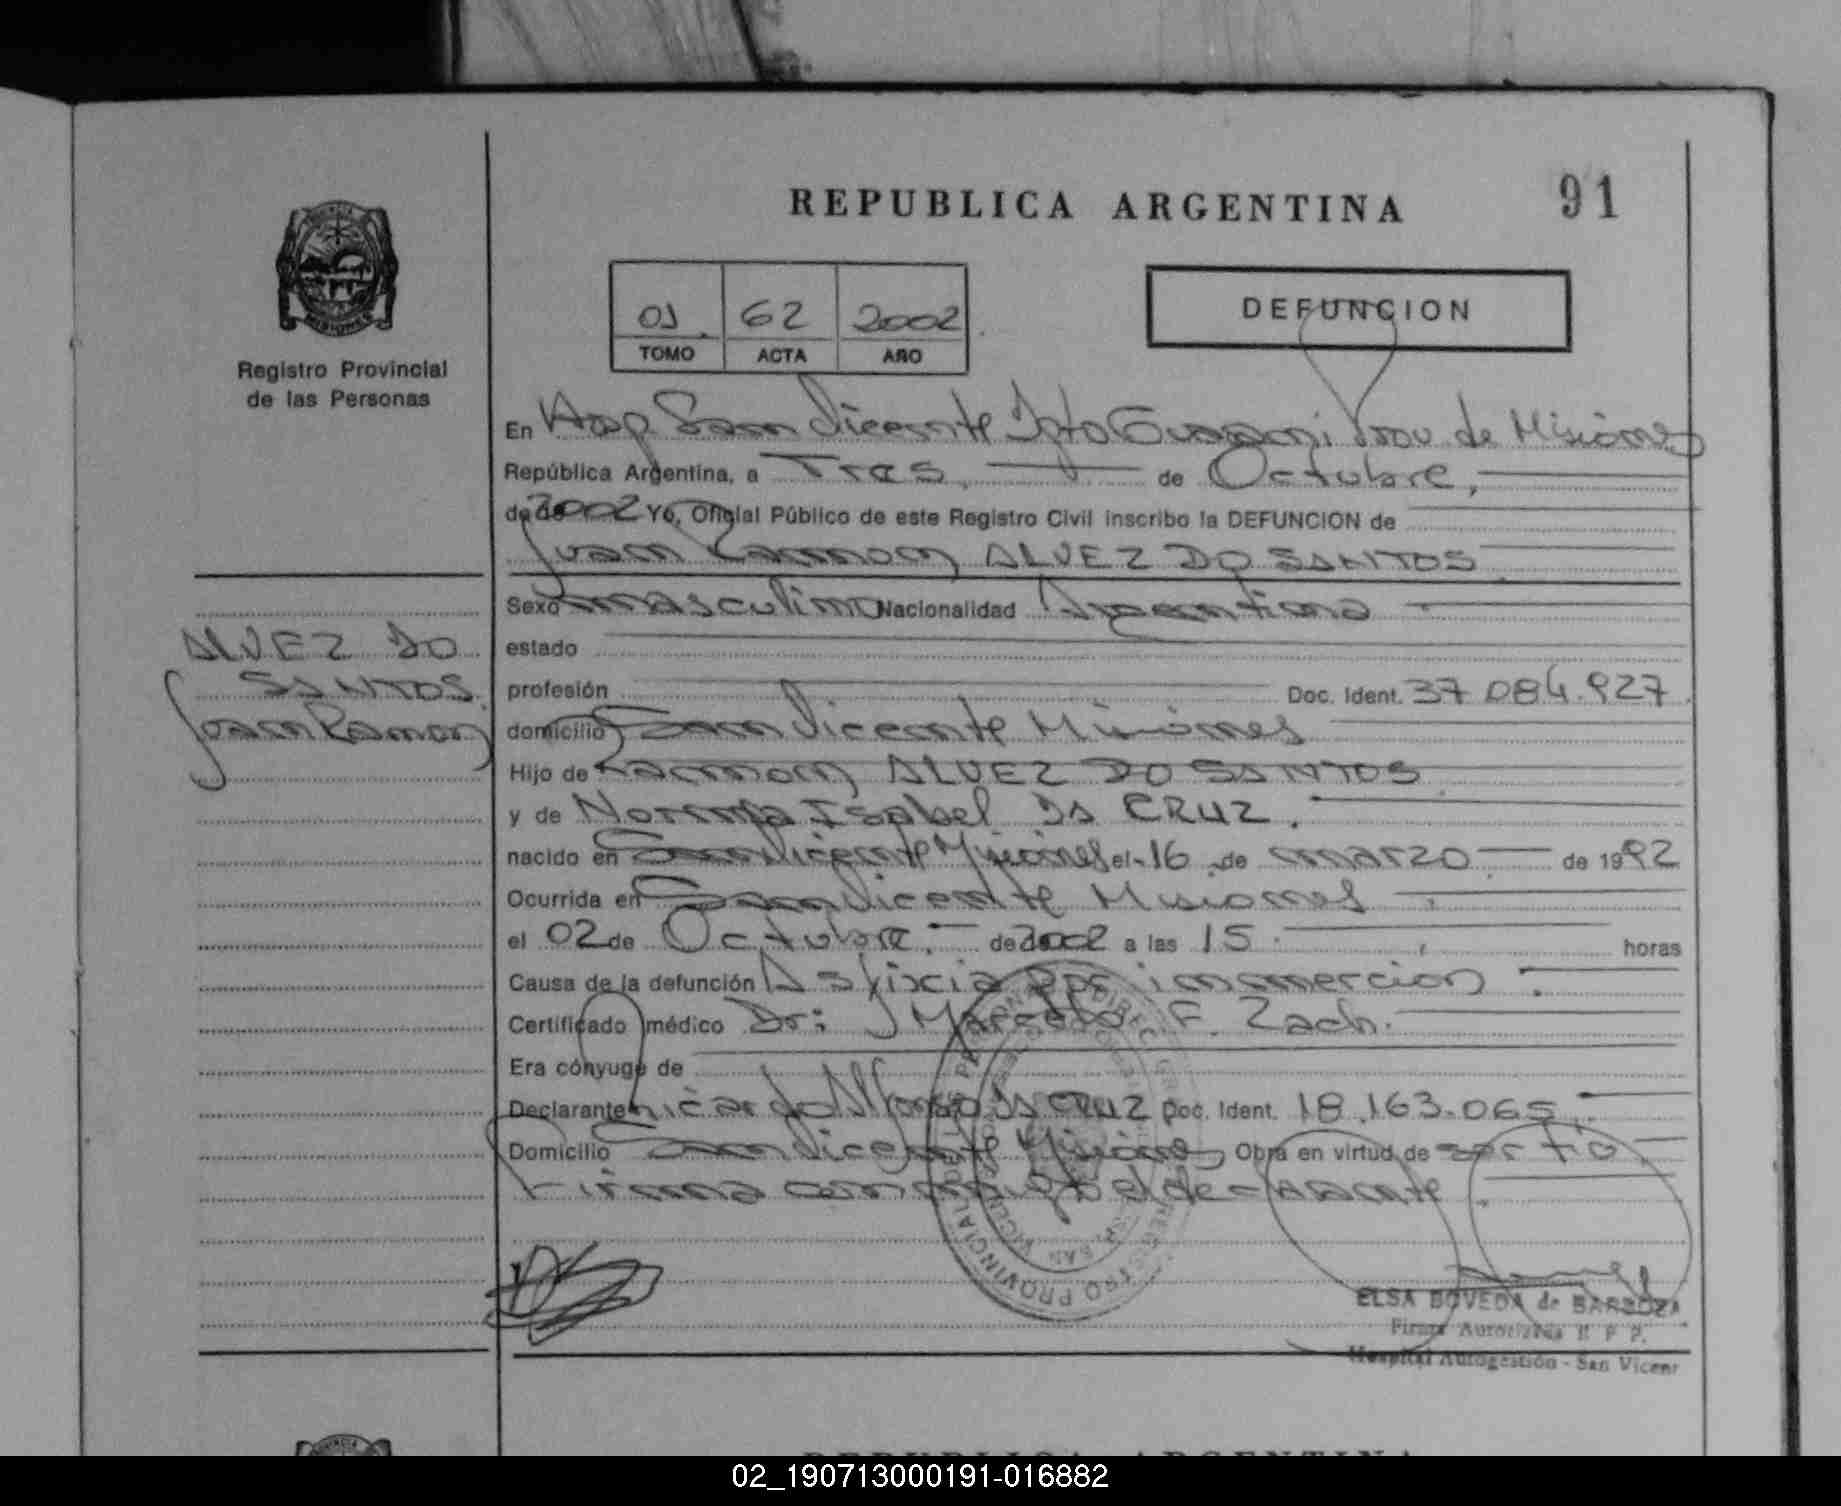 REPUBLICA ARGENTINA
91
01 62 2002
TOMO ACTA AÑO
DEFUNCION
MISIONES
Registro Provincial
de las Personas
En Hosp San Vicente Dpto Guarani Prov de Misiones
República Argentina, a Tres de Octubre,
de 2002 Yo, Oficial Público de este Registro Civil inscribo la DEFUNCION de
Juan Ramon ALVEZ DO SANTOS
Sexo masculino Nacionalidad Argentina
estado
ALVEZ DO
SANTOS
Juan Ramon
profesión Doc. Ident. 37 084.927
domicilio San Vicente Misiones
Hijo de Ramon ALVEZ DO SANTOS
y de Norma Isabel DA CRUZ.
nacido en San Vicente Misiones el 16 de marzo de 1992
Ocurrida en San Vicente Misiones
el 02 de Octubre de 2002 a las 15 horas
Causa de la defunción Asfixia por inmercion
Certificado médico Dr: Marcelo F. Zach.
Era cónyuge de
Declarante Ricardo Alfonso DA CRUZ Doc. Ident. 18.163.065
Domicilio San Vicente Misiones Obra en virtud de ser tio
Firma conmigo el declarante
REGISTRO PROVINCIAL DE
ELSA BOVEDA de BARBOZA
Firma Autorizada R P P.
Hospital Autogestión - San Vicent
REPUBLICA ARGENTINA
02_190713000191-016882